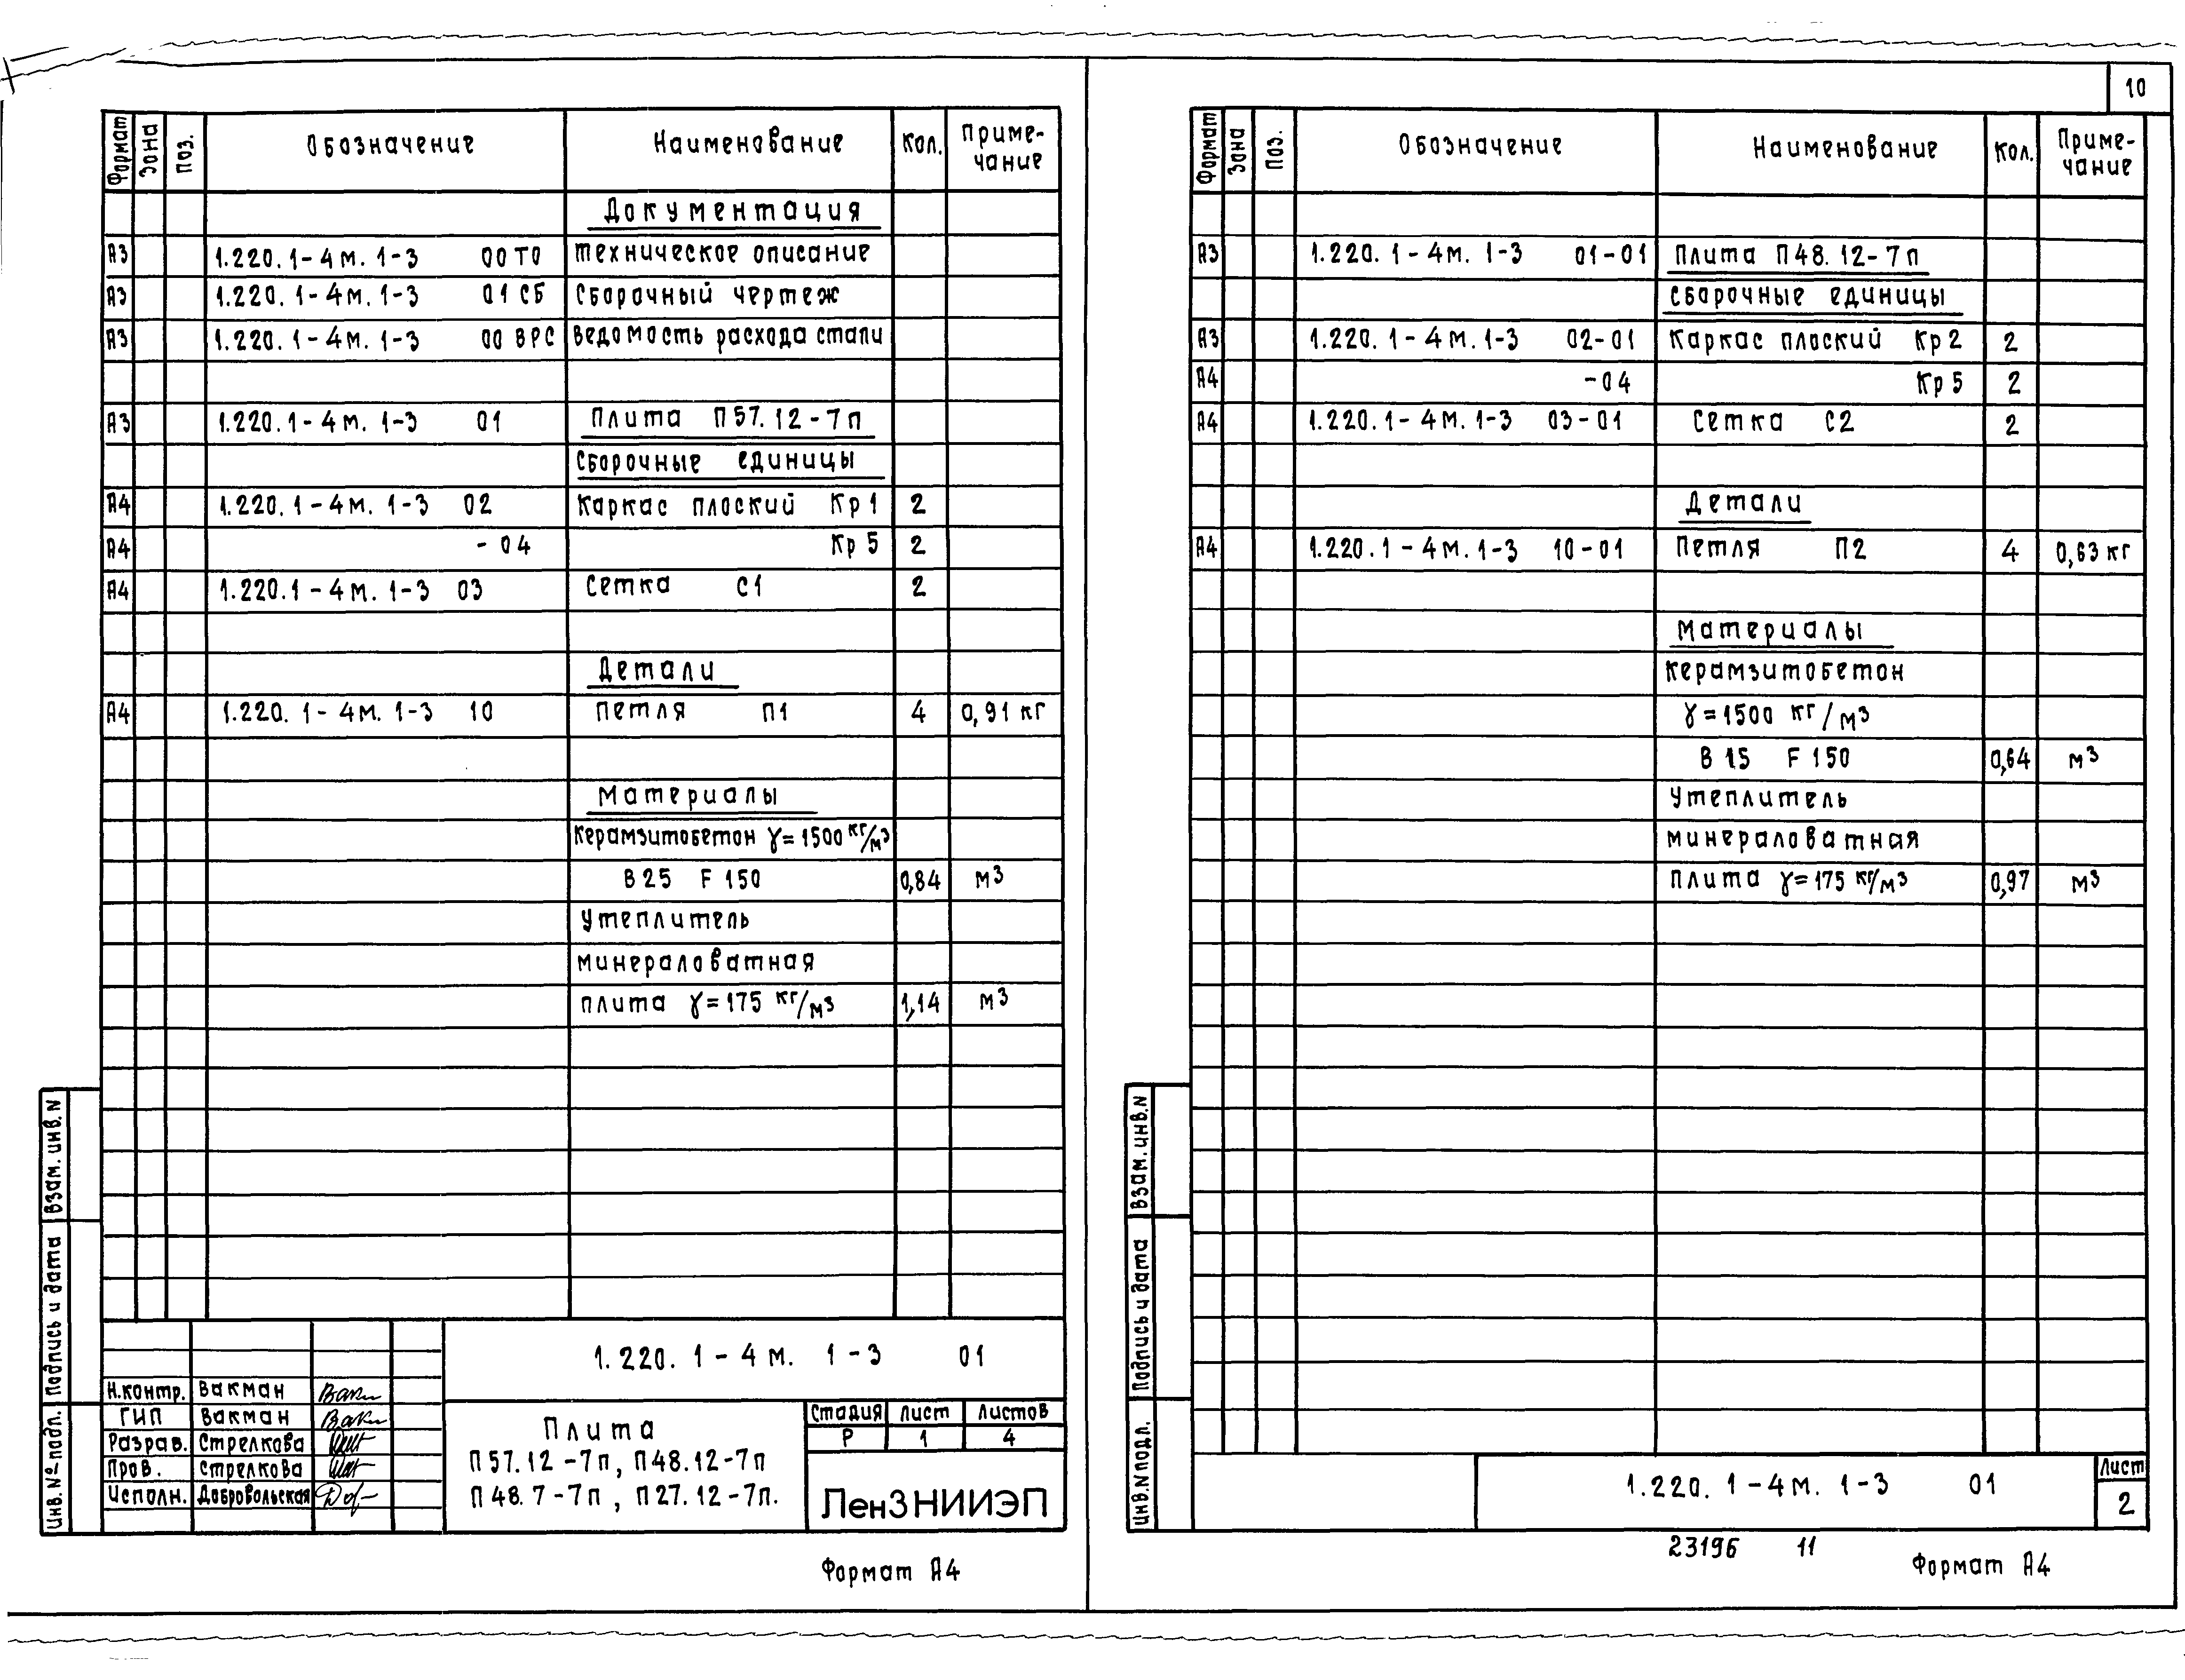 10
Формат Зона Поз. Обозначение Наименование Кол. Приме-чание
Документация
А3 1.220.1-4м.1-3 00ТО Техническое описание
А3 1.220.1-4м.1-3 01СБ Сборочный чертеж
А3 1.220.1-4м.1-3 00ВРС Ведомость расхода стали
А3 1.220.1-4м.1-3 01 Плита П57.12-7п
Сборочные единицы
А4 1.220.1-4м.1-3 02 Каркас плоский Кр1 2
А4 -04 Кр5 2
А4 1.220.1-4м.1-3 03 Сетка С1 2
Детали
А4 1.220.1-4м.1-3 10 Петля П1 4 0,91 кг
Материалы
Керамзитобетон γ=1500 кг/м3
В25 F150 0,84 м3
Утеплитель
минераловатная
плита γ=175 кг/м3 1,14 м3
Взам. инв. N
Подпись и дата
Инв. № подл.
1.220.1-4м. 1-3 01
Н.контр. Вакман
ГИП Вакман
Разраб. Стрелкова
Пров. Стрелкова
Исполн. Добровольская
Плита
П57.12-7п, П48.12-7п
П48.7-7п, П27.12-7п.
Стадия Лист Листов
Р 1 4
ЛенЗНИИЭП
Формат А4
Формат Зона Поз. Обозначение Наименование Кол. Приме-чание
А3 1.220.1-4м.1-3 01-01 Плита П48.12-7п
Сборочные единицы
А3 1.220.1-4м.1-3 02-01 Каркас плоский Кр2 2
А4 -04 Кр5 2
А4 1.220.1-4м.1-3 03-01 Сетка С2 2
Детали
А4 1.220.1-4м.1-3 10-01 Петля П2 4 0,63 кг
Материалы
Керамзитобетон
γ=1500 кг/м3
В15 F150 0,64 м3
Утеплитель
минераловатная
плита γ=175 кг/м3 0,97 м3
Взам. инв. N
Подпись и дата
Инв. N подл.
1.220.1-4м. 1-3 01
Лист
2
23196 11
Формат А4